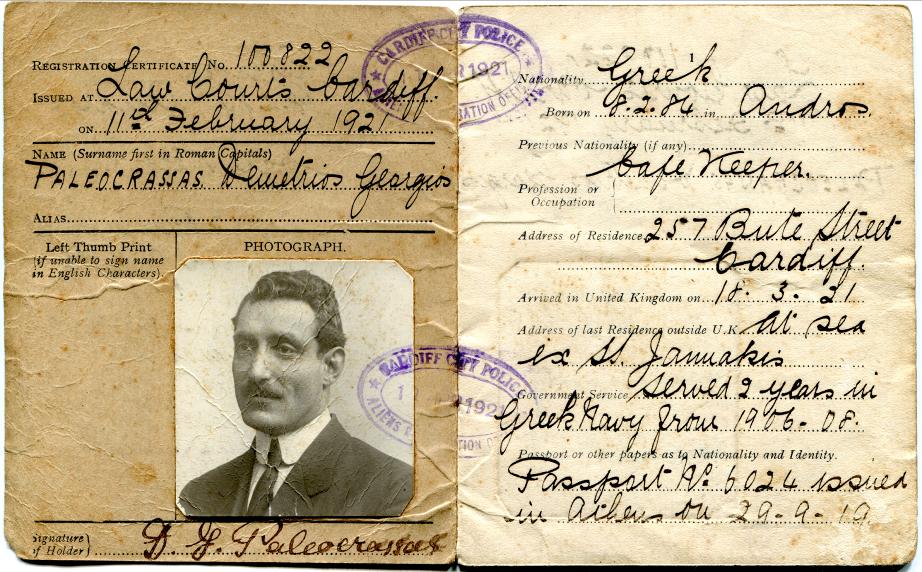 REGISTRATION CERTIFICATE No. 100822
ISSUED AT Law Courts Cardiff.
ON 11th February 1921
NAME (Surname first in Roman Capitals)
PALEOCRASSAS Demetrios Georgios
ALIAS
Left Thumb Print
(if unable to sign name
in English Characters).
PHOTOGRAPH.
CARDIFF CITY POLICE
1921
CARDIFF CITY POLICE
1921
ALIENS
Signature
of Holder
D. G. Paleocrassas
1
Nationality Greek
Born on 8.2.84 in Andros
Previous Nationality (if any)
Cafe Keeper.
Profession or
Occupation
Address of Residence 257 Bute Street
Cardiff.
Arrived in United Kingdom on 18.3.21
Address of last Residence outside U.K. At sea
ex SS. Jannakis
Government Service Served 2 years in
Greek Navy from 1906-08.
Passport or other papers as to Nationality and Identity.
Passport No. 6024 issued
in Athens on 29-9-19.